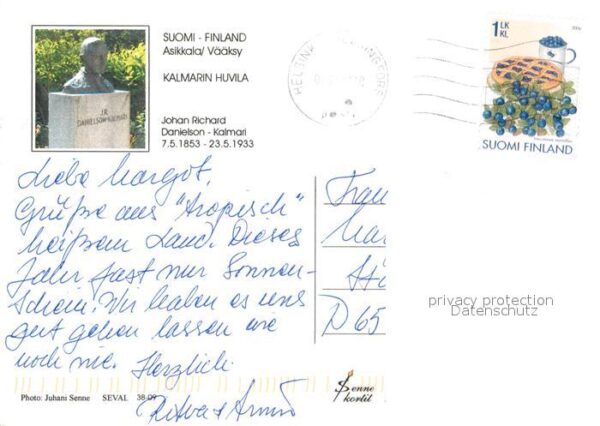 SUOMI - FINLAND
Asikkala/ Vääksy
KALMARIN HUVILA
J.R.
DANIELSON-KALMARI
Johan Richard
Danielson - Kalmari
7.5.1853 - 23.5.1933
HELSINKI HELSINGFORS
1 LK
KL
SUOMI FINLAND
Liebe Margot,
Grüße aus "tropisch"
heißem Land. Dieses
Jahr fast nur Sonnen-
schein! Wir haben es uns
gut gehen lassen wie
noch nie. Herzlich
Ritva + 
Frau
D 65
privacy protection
Datenschutz
Photo: Juhani Senne SEVAL 38-09
Senne
kortit